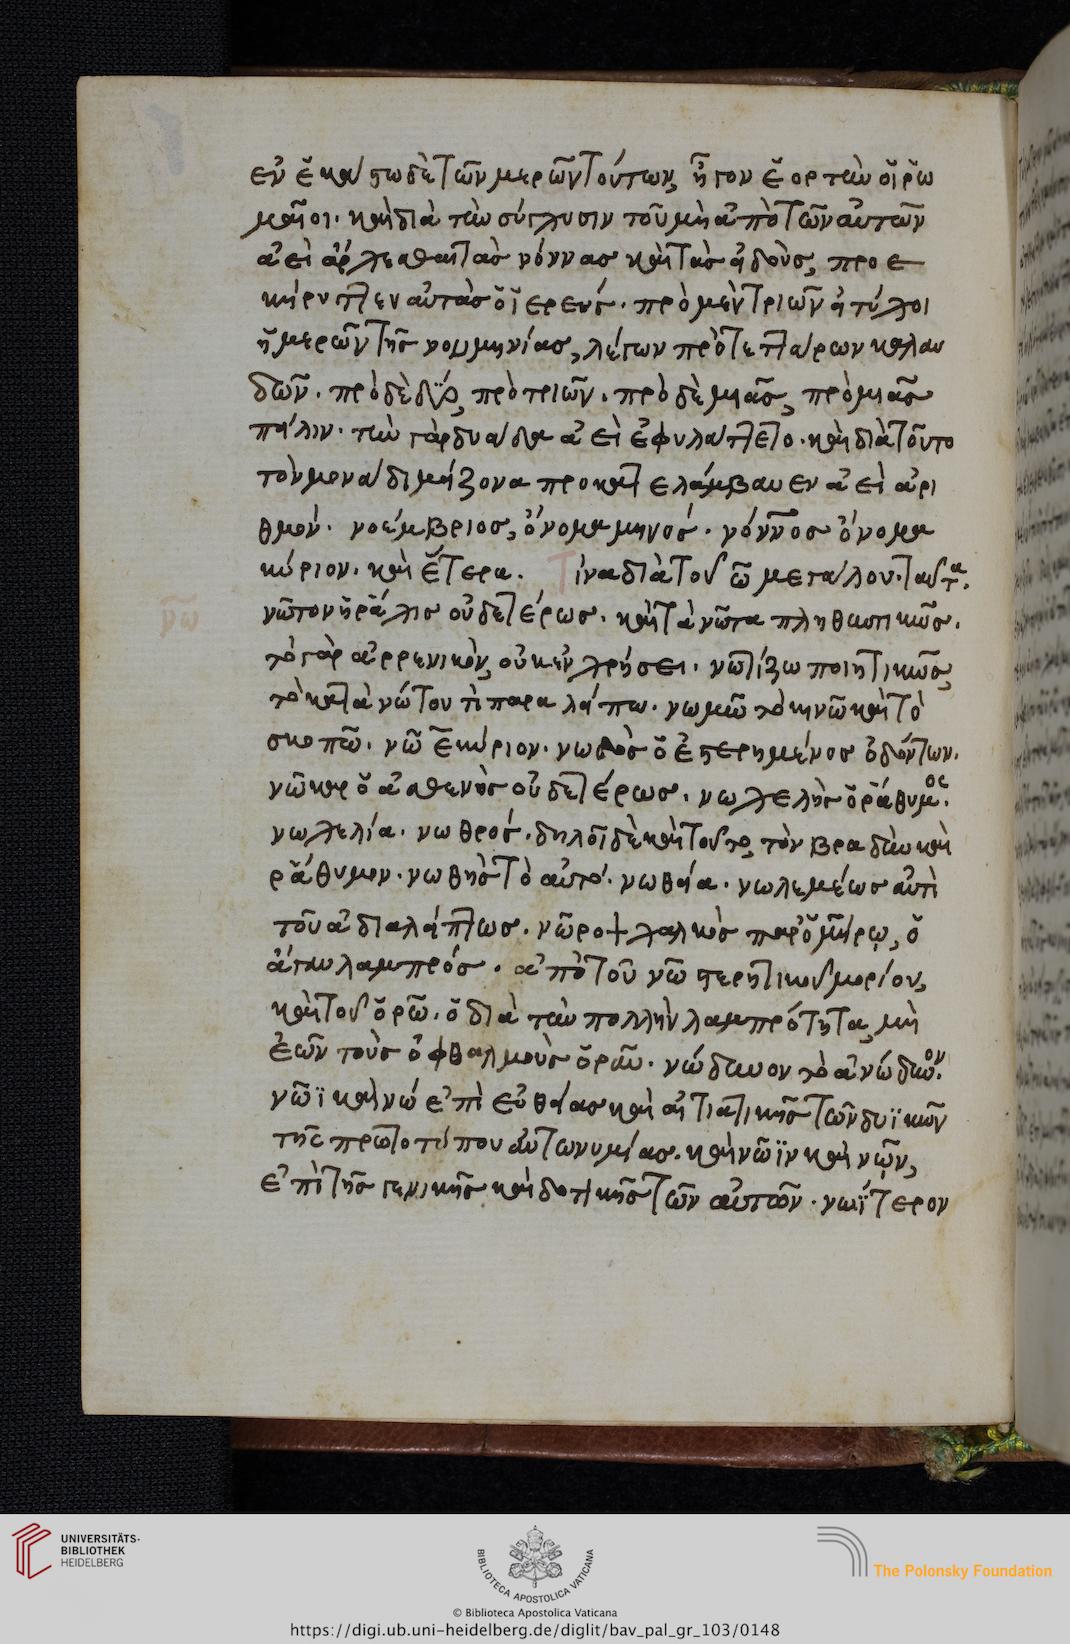 ἐν ἑκάστω δὲ τῶν μερῶν τούτων, ἦγον ἑορτὴν οἱ ῥω
μαῖοι· καὶ διὰ τὴν σύγχυσιν τοῦ μὴ ἀπὸ τῶν αὐτῶν
ἀεὶ ἄρχεσθαι τὰς νόννας καὶ τὰς εἰδοὺς, προε
κήρυττεν αὐτὰς ὁ ἱερεύς· πρὸ μὲν τριῶν εἰ τύχοι
ἡμερῶν τῆς νουμηνίας, λέγων πρὸ τεττάρων καλαν
δῶν· πρὸ δὲ πρὸ τριῶν· πρὸ δὲ μιᾶς, πρὸ μιᾶς
πάλιν· τὴν γὰρ δυάδα ἀεὶ ἐφυλάττετο· καὶ διὰ τοῦτο
τὸν μονάδι μείζονα προκατελάμβανεν ἀεὶ ἀρι
θμόν· νοέμβριος, ὄνομα μηνός· νόννος ὄνομα
κύριον· καὶ ἕτερα. Τίνα διὰ τοῦ ω μεγάλου· ταῦτα.
νω
νῶτον ἡ ῥάχις οὐδετέρως· καὶ τὰ νῶτα πληθυντικῶς.
τὸ γὰρ ἀρρενικὸν, οὐκ ἐν χρήσει· νωτίζω ποιητικῶς,
τὸ κατὰ νώτου τι παραλείπω· νωμῶ τὸ κινῶ καὶ τὸ
σκοπῶ· νῶε κύριον· νωδὸς ὁ ἐστερημένος ὀδόντων.
νῶκαρ ὁ ἀσθενὴς οὐδετέρως· νωχελὴς ὁ ῥάθυμος.
νωχελία· νωθρός· δηλοῖ δὲ καὶ τοῦτο, τὸν βραδὺν καὶ
ῥάθυμον· νωθὴς τὸ αὐτό· νωθεία· νωλεμέως ἀντὶ
τοῦ ἀδιαλείπτως· νῶροψ χαλκὸς παρ' ὁμήρῳ, ὁ
ἄγαν λαμπρός· ἀπὸ τοῦ νω στερητικοῦ μορίου,
καὶ τοῦ ὁρῶ· ὁ διὰ τὴν πολλὴν λαμπρότητα, μὴ
ἐῶν τοὺς ὀφθαλμοὺς ὁρᾶν· νώδυνον τὸ ἀνώδυνον.
νῶϊ καὶ νώ ἐπὶ εὐθείας καὶ αἰτιατικῆς τῶν δυϊκῶν
τῆς πρωτοτύπου ἀντωνυμίας· καὶ νῶϊν καὶ νῷν,
ἐπὶ τῆς γενικῆς καὶ δοτικῆς τῶν αὐτῶν· νωΐτερον
UNIVERSITÄTS-
BIBLIOTHEK
HEIDELBERG
BIBLIOTECA APOSTOLICA VATICANA
The Polonsky Foundation
© Biblioteca Apostolica Vaticana
https://digi.ub.uni-heidelberg.de/diglit/bav_pal_gr_103/0148